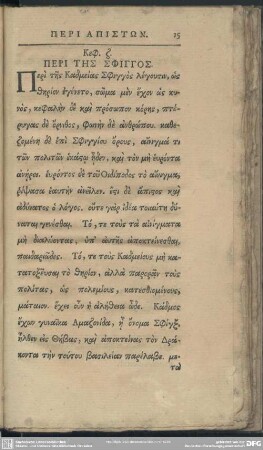 ΠΕΡΙ ΑΠΙΣΤΩΝ. 15
Κεφ. ζ.
ΠΕΡΙ ΤΗΣ ΣΦΙΓΓΟΣ.
Περὶ τῆς Καδμείας Σφιγγὸς λέγουσιν, ὡς
θηρίον ἐγένετο, σῶμα μὲν ἔχον ὡς κυ-
νὸς, κεφαλὴν δὲ καὶ πρόσωπον κόρης, πτέ-
ρυγας δὲ ὄρνιθος, φωνὴν δὲ ἀνθρώπου. καθε-
ζομένη δὲ ἐπὶ Σφιγγίου ὄρους, αἴνιγμά τι
τῶν πολιτῶν ἑκάστῳ ᾖδεν, καὶ τὸν μὴ εὑρόντα
ἀνῄρει. εὑρόντος δὲ τοῦ Οἰδίποδος τὸ αἴνιγμα,
ῥίψασα ἑαυτὴν ἀνεῖλεν. ἔστι δὲ ἄπιστος καὶ
ἀδύνατος ὁ λόγος. οὔτε γὰρ ἰδέα τοιαύτη δύ-
ναται γενέσθαι. Τό, τε τοὺς τὰ αἰνίγματα
μὴ διαλύοντας, ὑπ' αὐτῆς ἀποκτείνεσθαι,
παιδαριῶδες. Τό, τε τοὺς Καδμείους μὴ κα-
τατοξεῦσαι τὸ θηρίον, ἀλλὰ παρορᾶν τοὺς
πολίτας, ὡς πολεμίους, κατεσθιομένους,
μάταιον. ἔχει οὖν ἡ ἀλήθεια ὧδε. Κάδμος
ἔχων γυναῖκα Ἀμαζονίδα, ᾗ ὄνομα Σφὶγξ,
ἦλθεν εἰς Θήβας, καὶ ἀποκτείνας τὸν Δρά-
κοντα τὴν τούτου βασιλείαν παρέλαβε. με-
τα